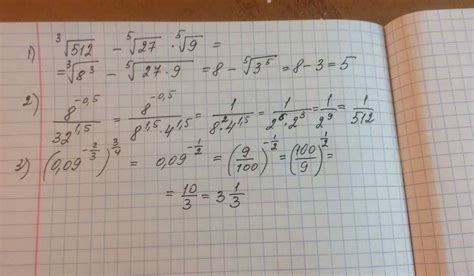 1) ∛512 − ⁵√27 · ⁵√9 =
= ∛8³ − ⁵√27·9 = 8 − ⁵√3⁵ = 8 − 3 = 5
2) 8^(-0,5) / 32^(1,5) = 8^(-0,5) / (8^(1,5) · 4^(1,5)) = 1 / (8² · 4^(1,5)) = 1 / (2⁶ · 2³) = 1/2⁹ = 1/512
3) (0,09^(-2/3))^(3/4) = 0,09^(-1/2) = (9/100)^(-1/2) = (100/9)^(1/2) =
= 10/3 = 3 1/3